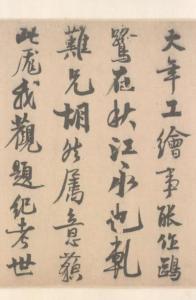 大年工繪事能作鷗
鷺在秋江水也
難兄胡然屬意
此我觀題紀考世